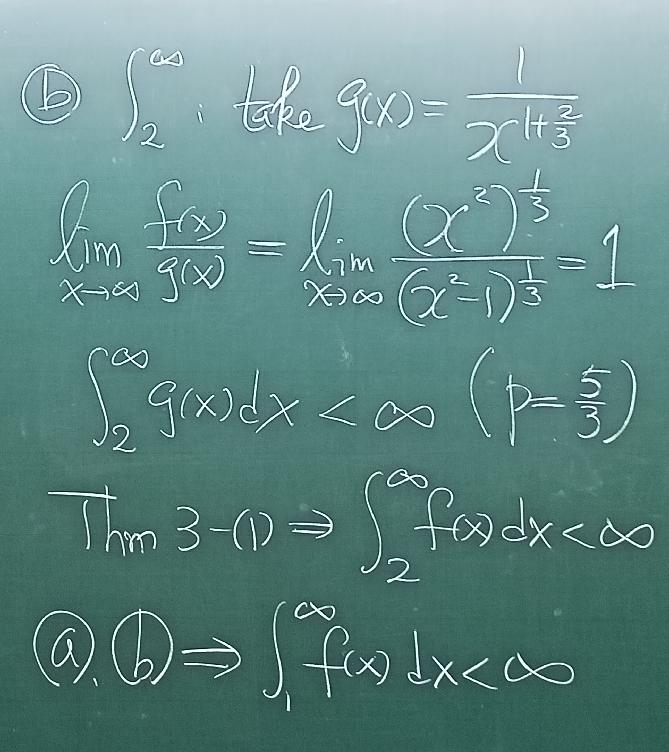 ⓑ ∫₂^∞ : take g(x) = 1/x^{1+2/3}
lim_{x→∞} f(x)/g(x) = lim_{x→∞} (x²)^{1/3}/(x²-1)^{1/3} = 1
∫₂^∞ g(x)dx < ∞ (p = 5/3)
Thm 3-(1) ⇒ ∫₂^∞ f(x)dx < ∞
ⓐ, ⓑ ⇒ ∫₁^∞ f(x)dx < ∞